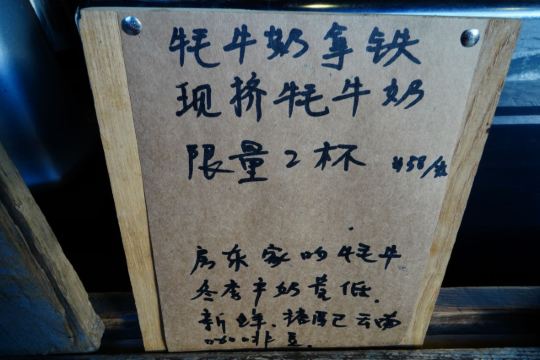 牦牛奶拿铁
现挤牦牛奶
限量2杯 ¥58/杯
房东家的牦牛
冬季产奶量低.
新鲜.搭配云南
咖啡豆.